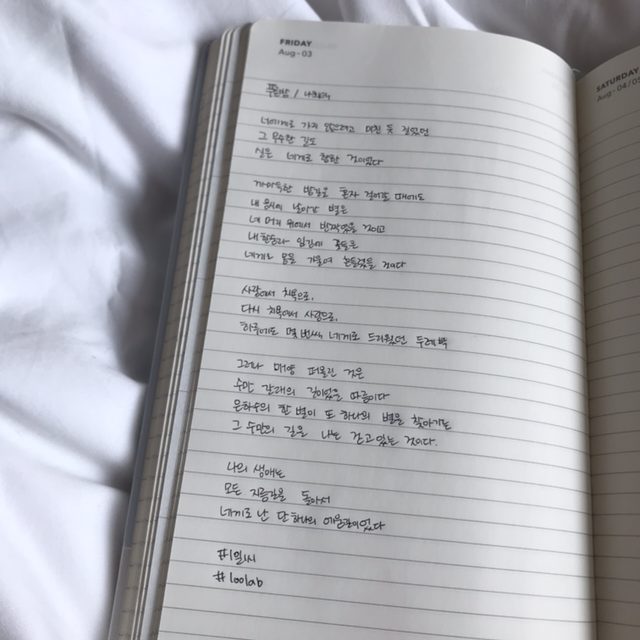 FRIDAY
Aug - 03
푸른밤 / 나희덕
너에게로 가지 않으려고 미친 듯 걸었던
그 무수한 길도
실은 네게로 향한 것이었다
까마득한 밤길을 혼자 걸어갈 때에도
내 응시에 날아간 별은
네 머리 위에서 반짝였을 것이고
내 한숨과 입김에 꽃들은
네게로 몸을 기울여 흔들렸을 것이다
사랑에서 치욕으로,
다시 치욕에서 사랑으로,
하루에도 몇 번씩 네게로 드리웠던 두레박
그러나 매양 퍼올린 것은
수만 갈래의 길이었을 따름이다
은하수의 한 별이 또 하나의 별을 찾아가는
그 수만의 길을 나는 걷고 있는 것이다.
나의 생애는
모든 지름길을 돌아서
네게로 난 단 하나의 에움길이었다
#100lab
SATURDAY
Aug - 04 / 05